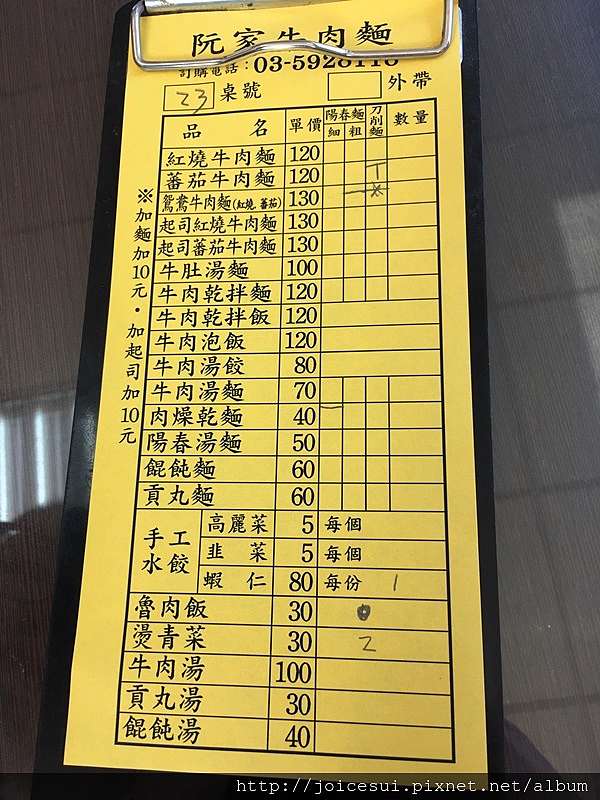 阮家牛肉麵
訂購電話：03-5928118
23 桌號 外帶
品名 單價 陽春麵 細 粗 刀削麵 數量
紅燒牛肉麵 120
蕃茄牛肉麵 120 T
鴛鴦牛肉麵(紅燒 蕃茄) 130
起司紅燒牛肉麵 130
起司蕃茄牛肉麵 130
牛肚湯麵 100
牛肉乾拌麵 120
牛肉乾拌飯 120
牛肉泡飯 120
牛肉湯餃 80
牛肉湯麵 70
肉燥乾麵 40
陽春湯麵 50
餛飩麵 60
貢丸麵 60
手工水餃
高麗菜 5 每個
韭菜 5 每個
蝦仁 80 每份 1
魯肉飯 30
燙青菜 30 2
牛肉湯 100
貢丸湯 30
餛飩湯 40
※加麵加10元・加起司加10元
http://joicesui.pixnet.net/album